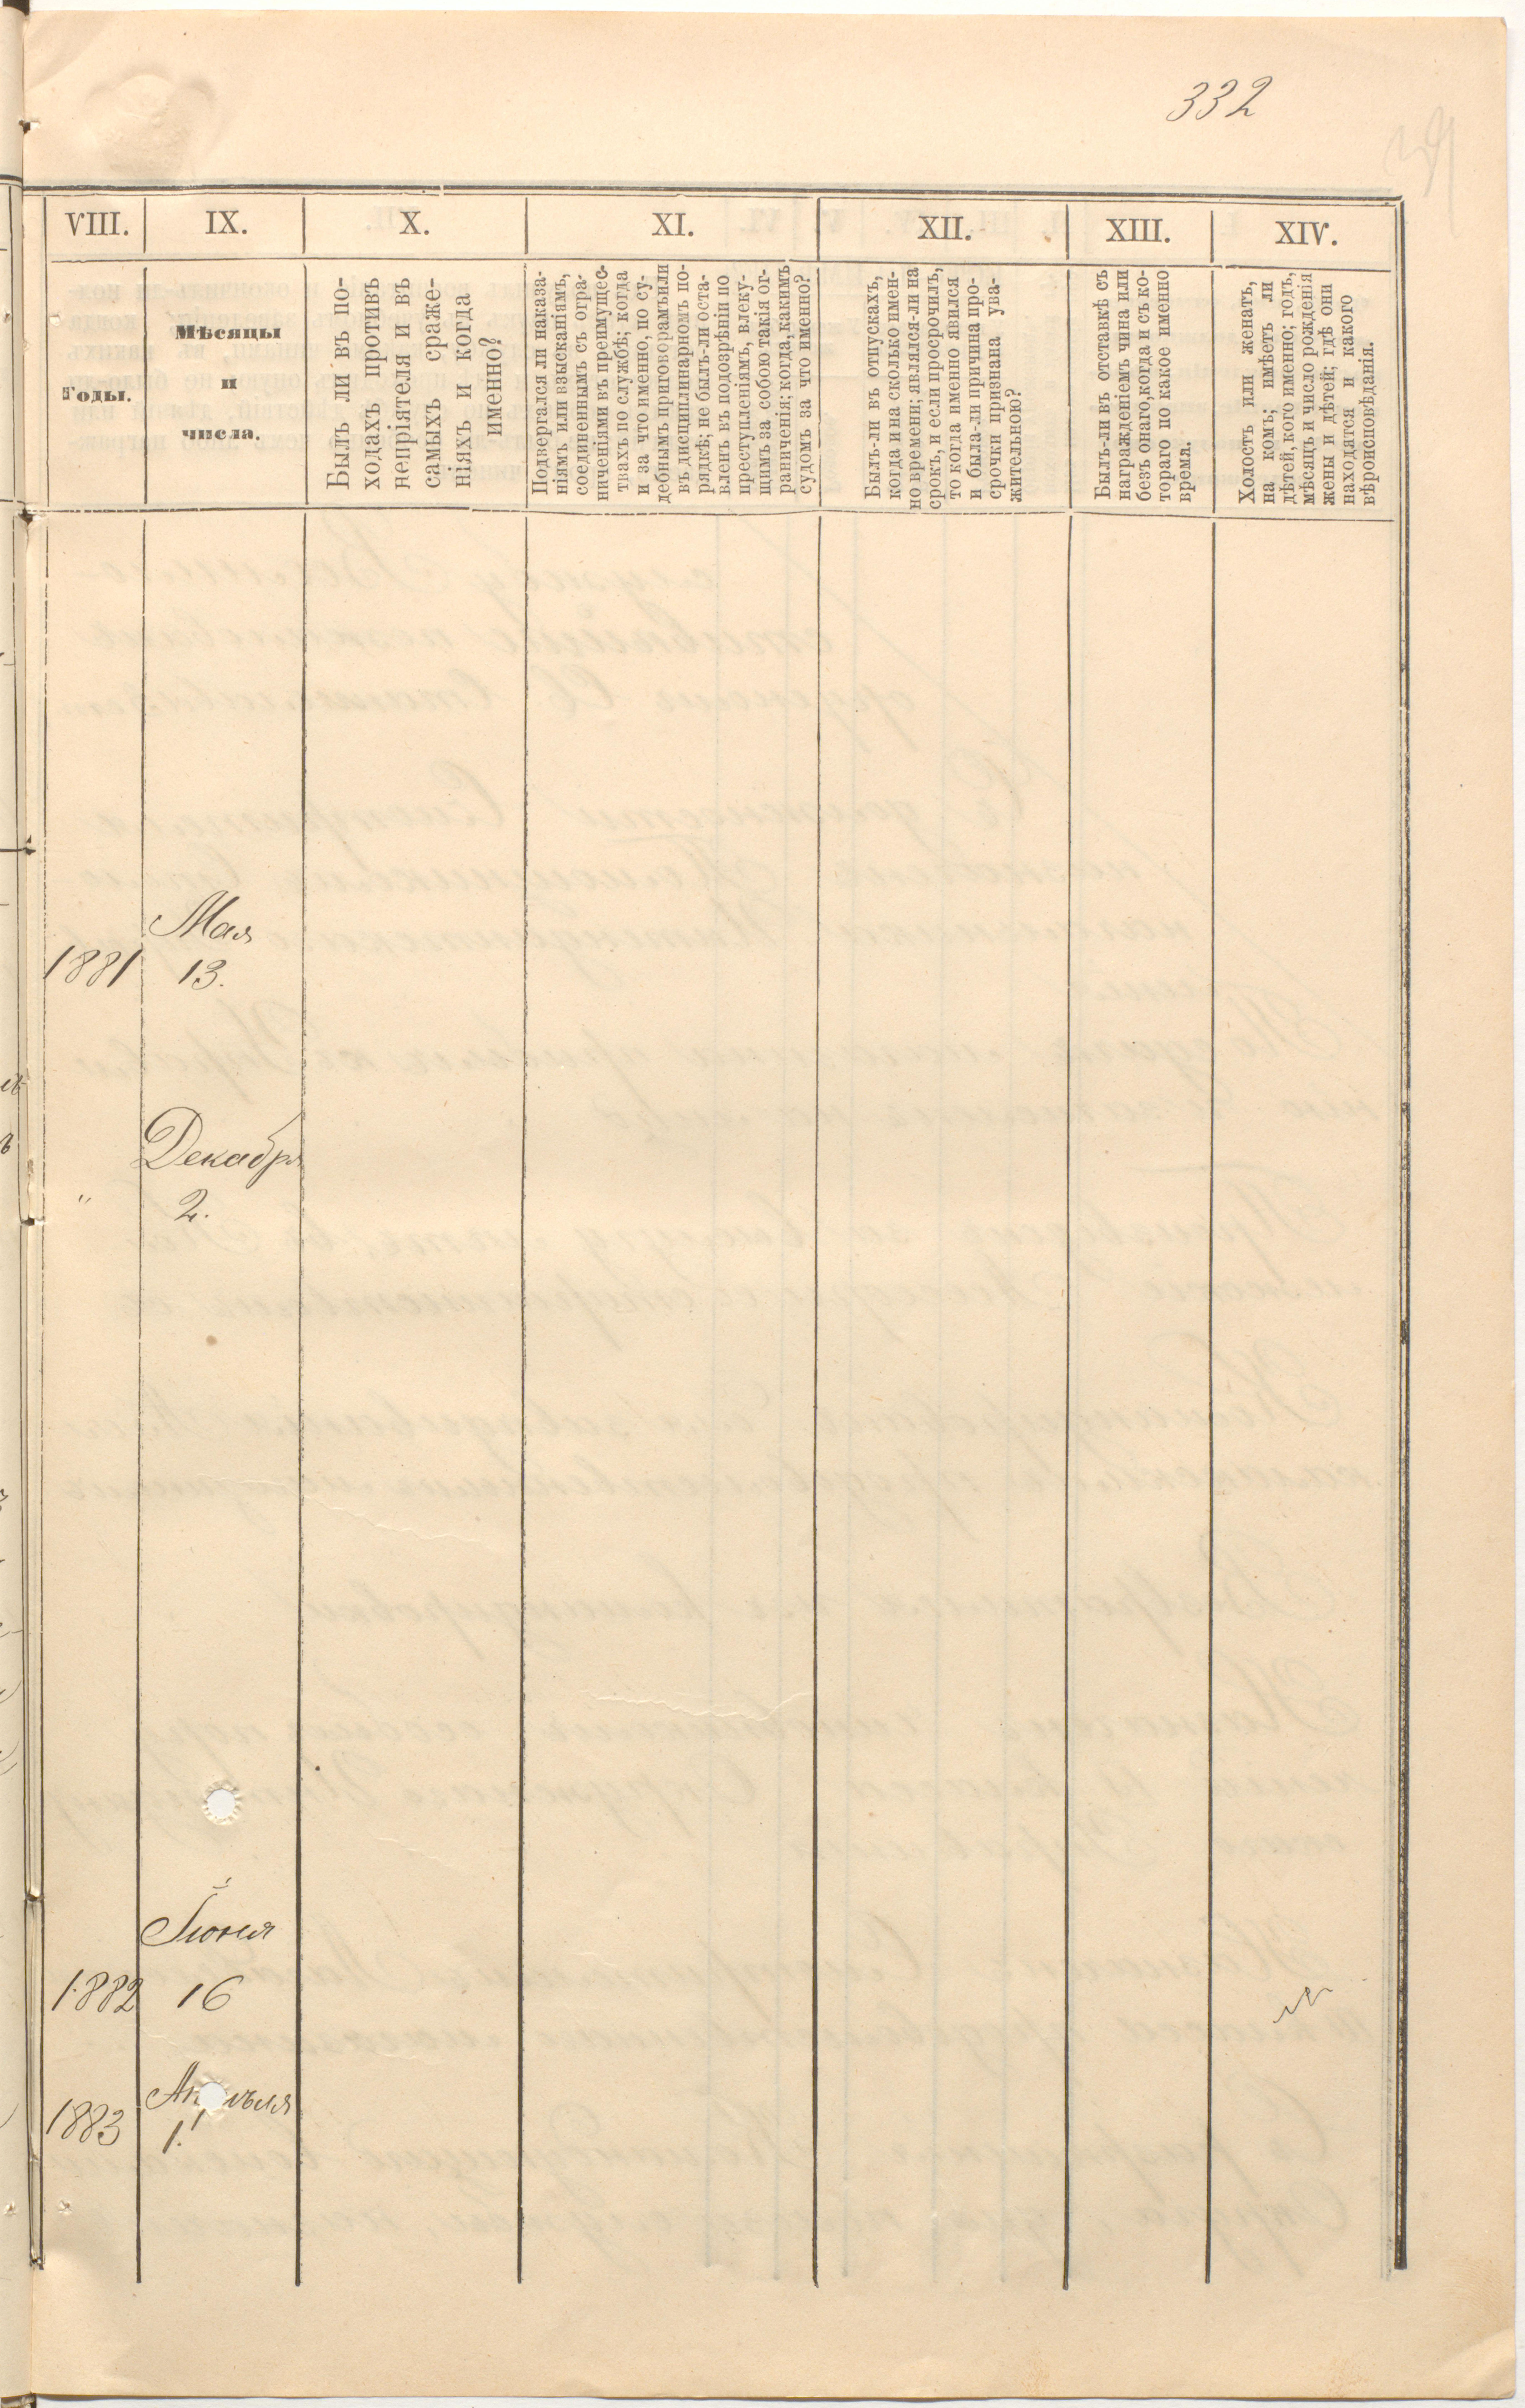 332
VIII.
IX.
X.
XI.
XII.
XIII.
XIV.
Годы.
Мѣсяцы
и
числа.
Былъ ли въ по-
ходахъ противъ
непріятеля и въ
самыхъ сраже-
ніяхъ и когда
именно?
Подвергался ли наказа-
ніямъ или взысканіямъ,
соединеннымъ съ огра-
ниченіями въ преимущес-
твахъ по службѣ; когда
и за что именно, по су-
дебнымъ приговорамъ или
въ дисциплинарномъ по-
рядкѣ; не былъ-ли оста-
вленъ въ подозрѣніи по
преступленіямъ, влеку-
щимъ за собою такія ог-
раниченія; когда, какимъ
судомъ за что именно?
Былъ-ли въ отпускахъ,
когда и на сколько имен-
но времени; являлся-ли на
срокъ, и если просрочилъ,
то когда именно явился
и была-ли причина про-
срочки признана ува-
жительною?
Былъ-ли въ отставкѣ съ
награжденіемъ чина или
безъ онаго, когда и съ ко-
тораго по какое именно
время.
Холостъ или женатъ,
на комъ; имѣетъ ли
дѣтей, кого именно; годъ,
мѣсяцъ и число рожденія
жены и дѣтей; гдѣ они
находятся и какого
вѣроисповѣданія.
Мая
1881 13.
Декабря
" 2.
Іюня
1882 16
Апрѣля
1883 1.